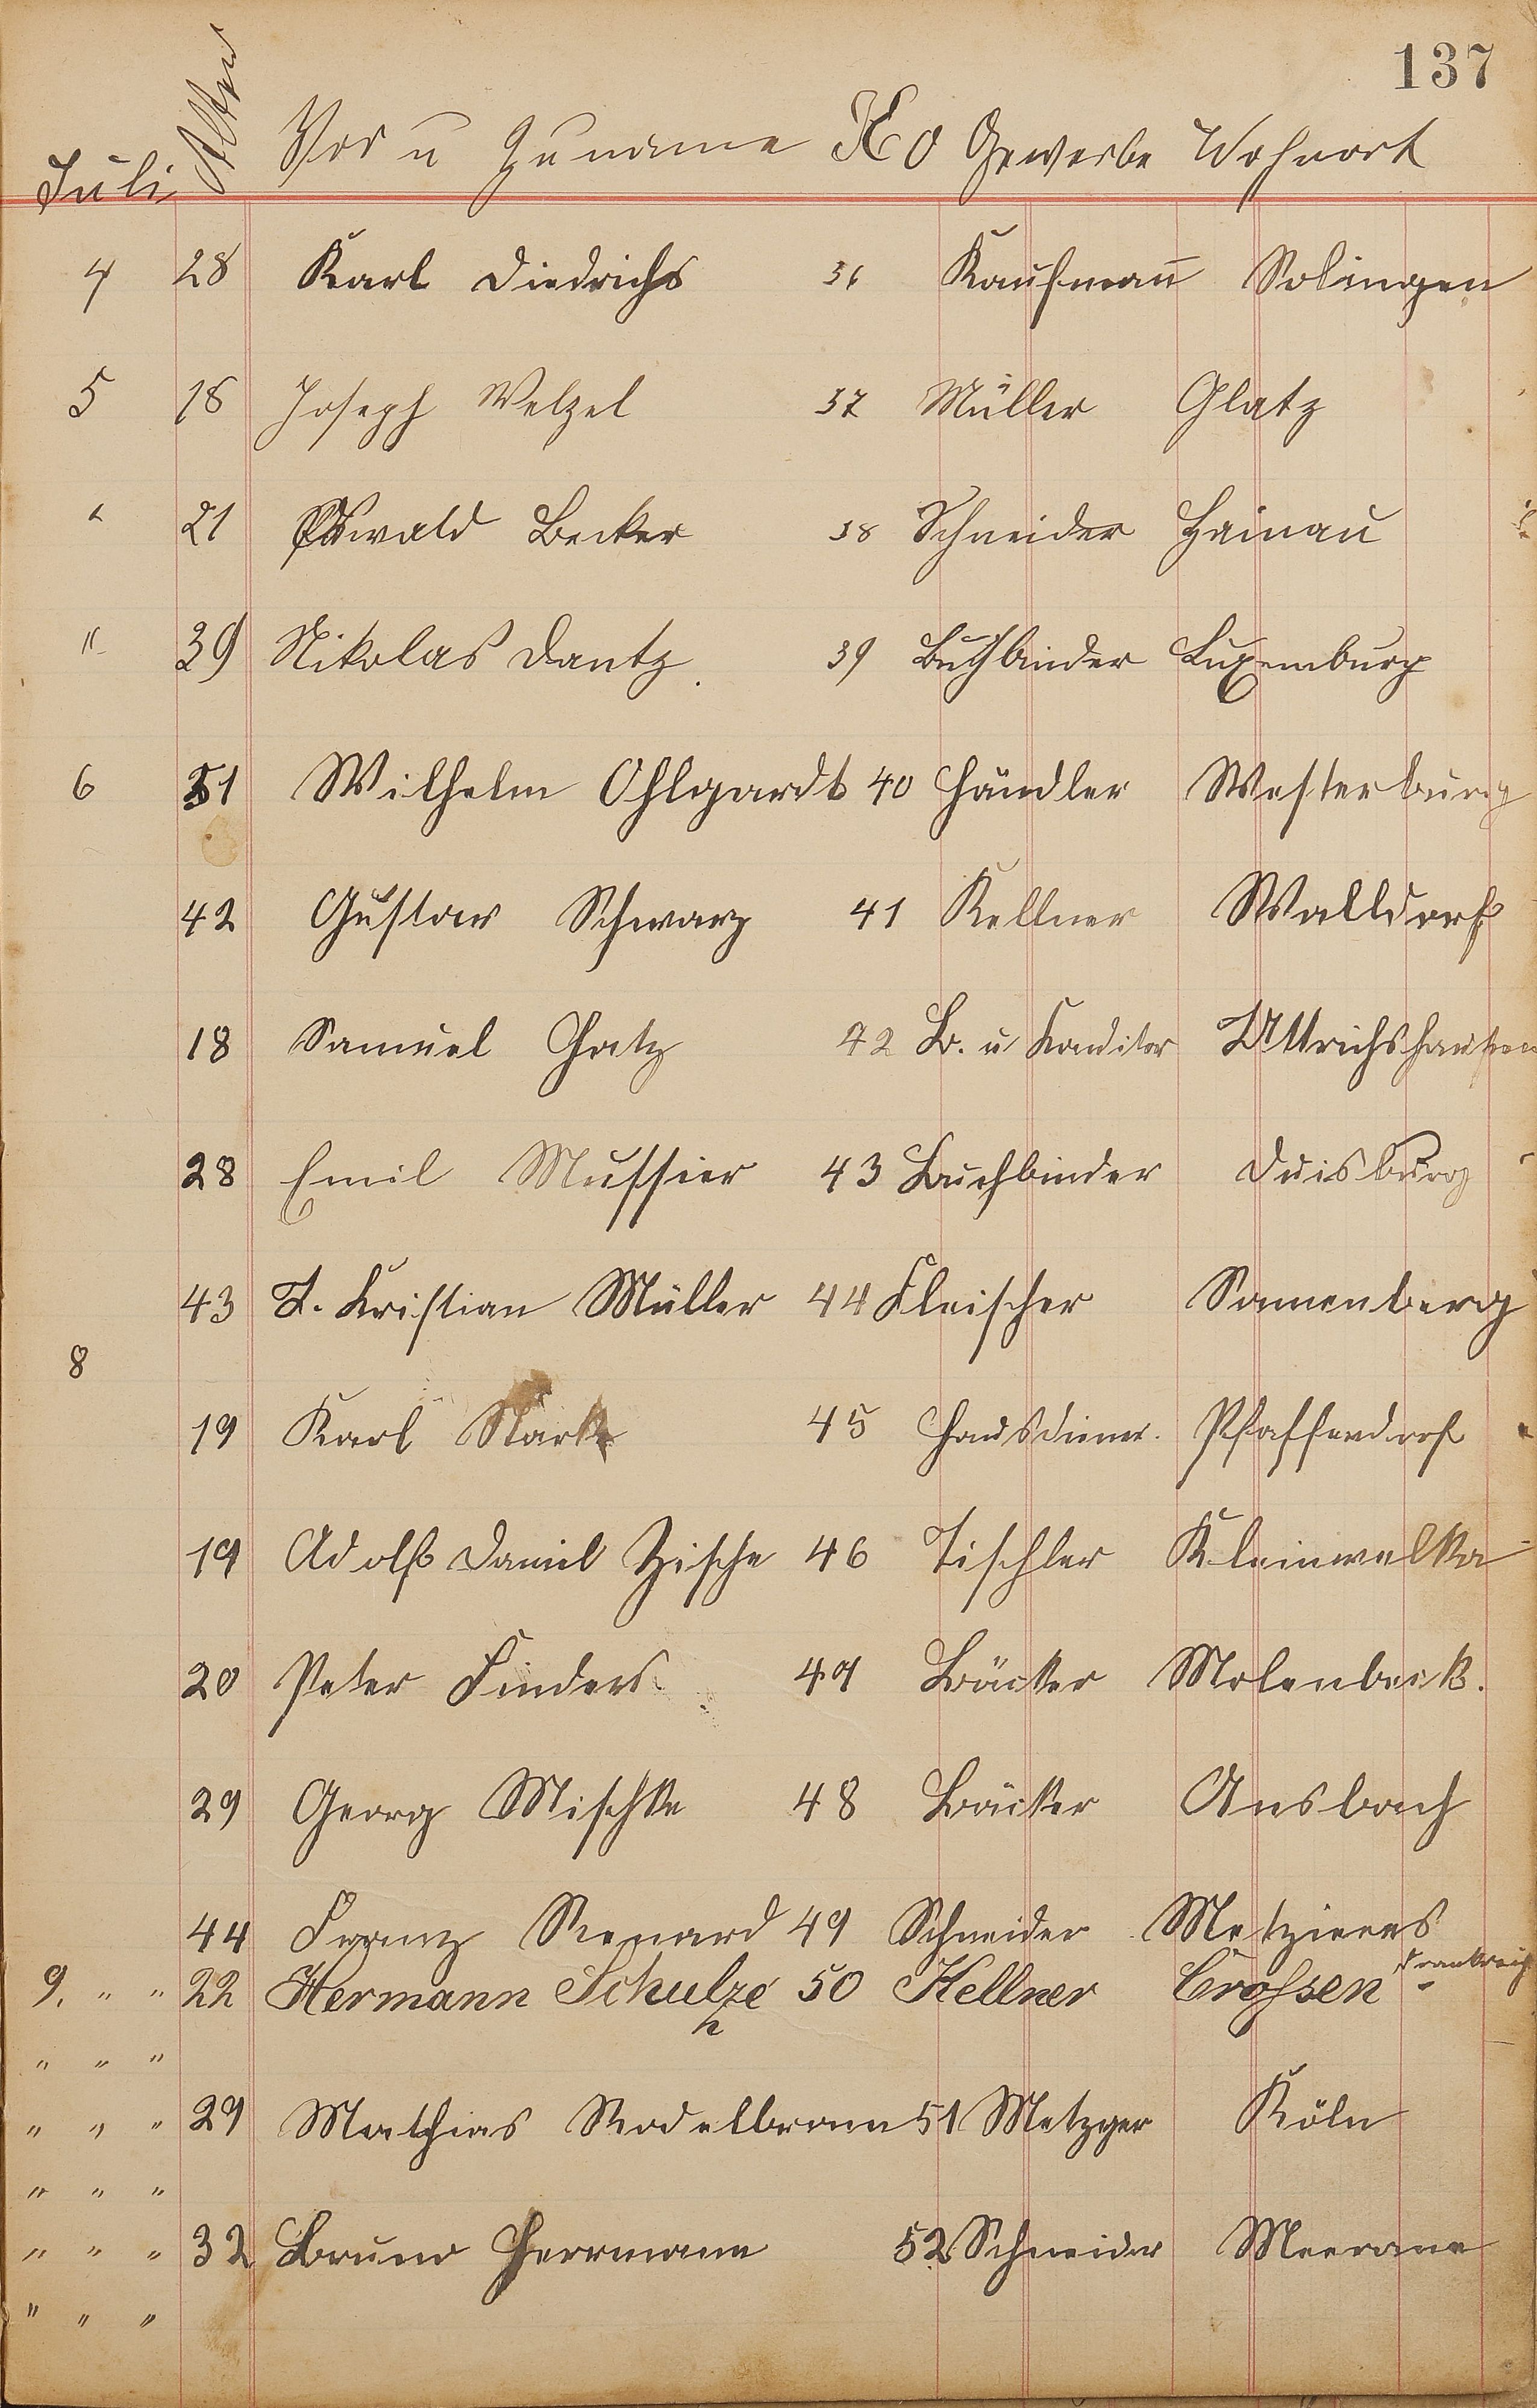 137
Juli Alter Vor u Zuname No Gewerbe Wohnort
4 28 Karl Diedrichs 36 Kaufmann Solingen
5 18 Joseph Welzel 37 Müller Glatz
" 21 Oswald Becker 38 Schneider Hainau
" 39 Nikolas Dantz. 39 Buchbinder Luxemburg
6 51 Wilhelm Ohlgardt 40 Händler Westerburg
42 Gustav Schwarz 41 Kellner Walldorf
18 Samuel Hatz 42 B. u Konditor Uttrichshausen
28 Emil Mussier 43 Buchbinder Duisburg
43 F. Kristian Müller 44 Fleischer Sonnenberg
8
19 Karl Stark 45 Hausdiener. Pfaffendorf
19 Adolf Daniel Zische 46 Tischler Kleinwelka
20 Peter Finders 47 Bäcker Molenbeck.
29 Georg Mischke 48 Bäcker Ansbach
44 Franz Renard 49 Schneider Metzieres
Frankreich
9. " " 22 Hermann Schulze 50 Kellner Crossen
" " "
" " " 29 Mathias Rodelbronn 51 Metzger Köln
" " "
" " " 32 Bruno Herrmann 52 Schneider Meerane
" " "